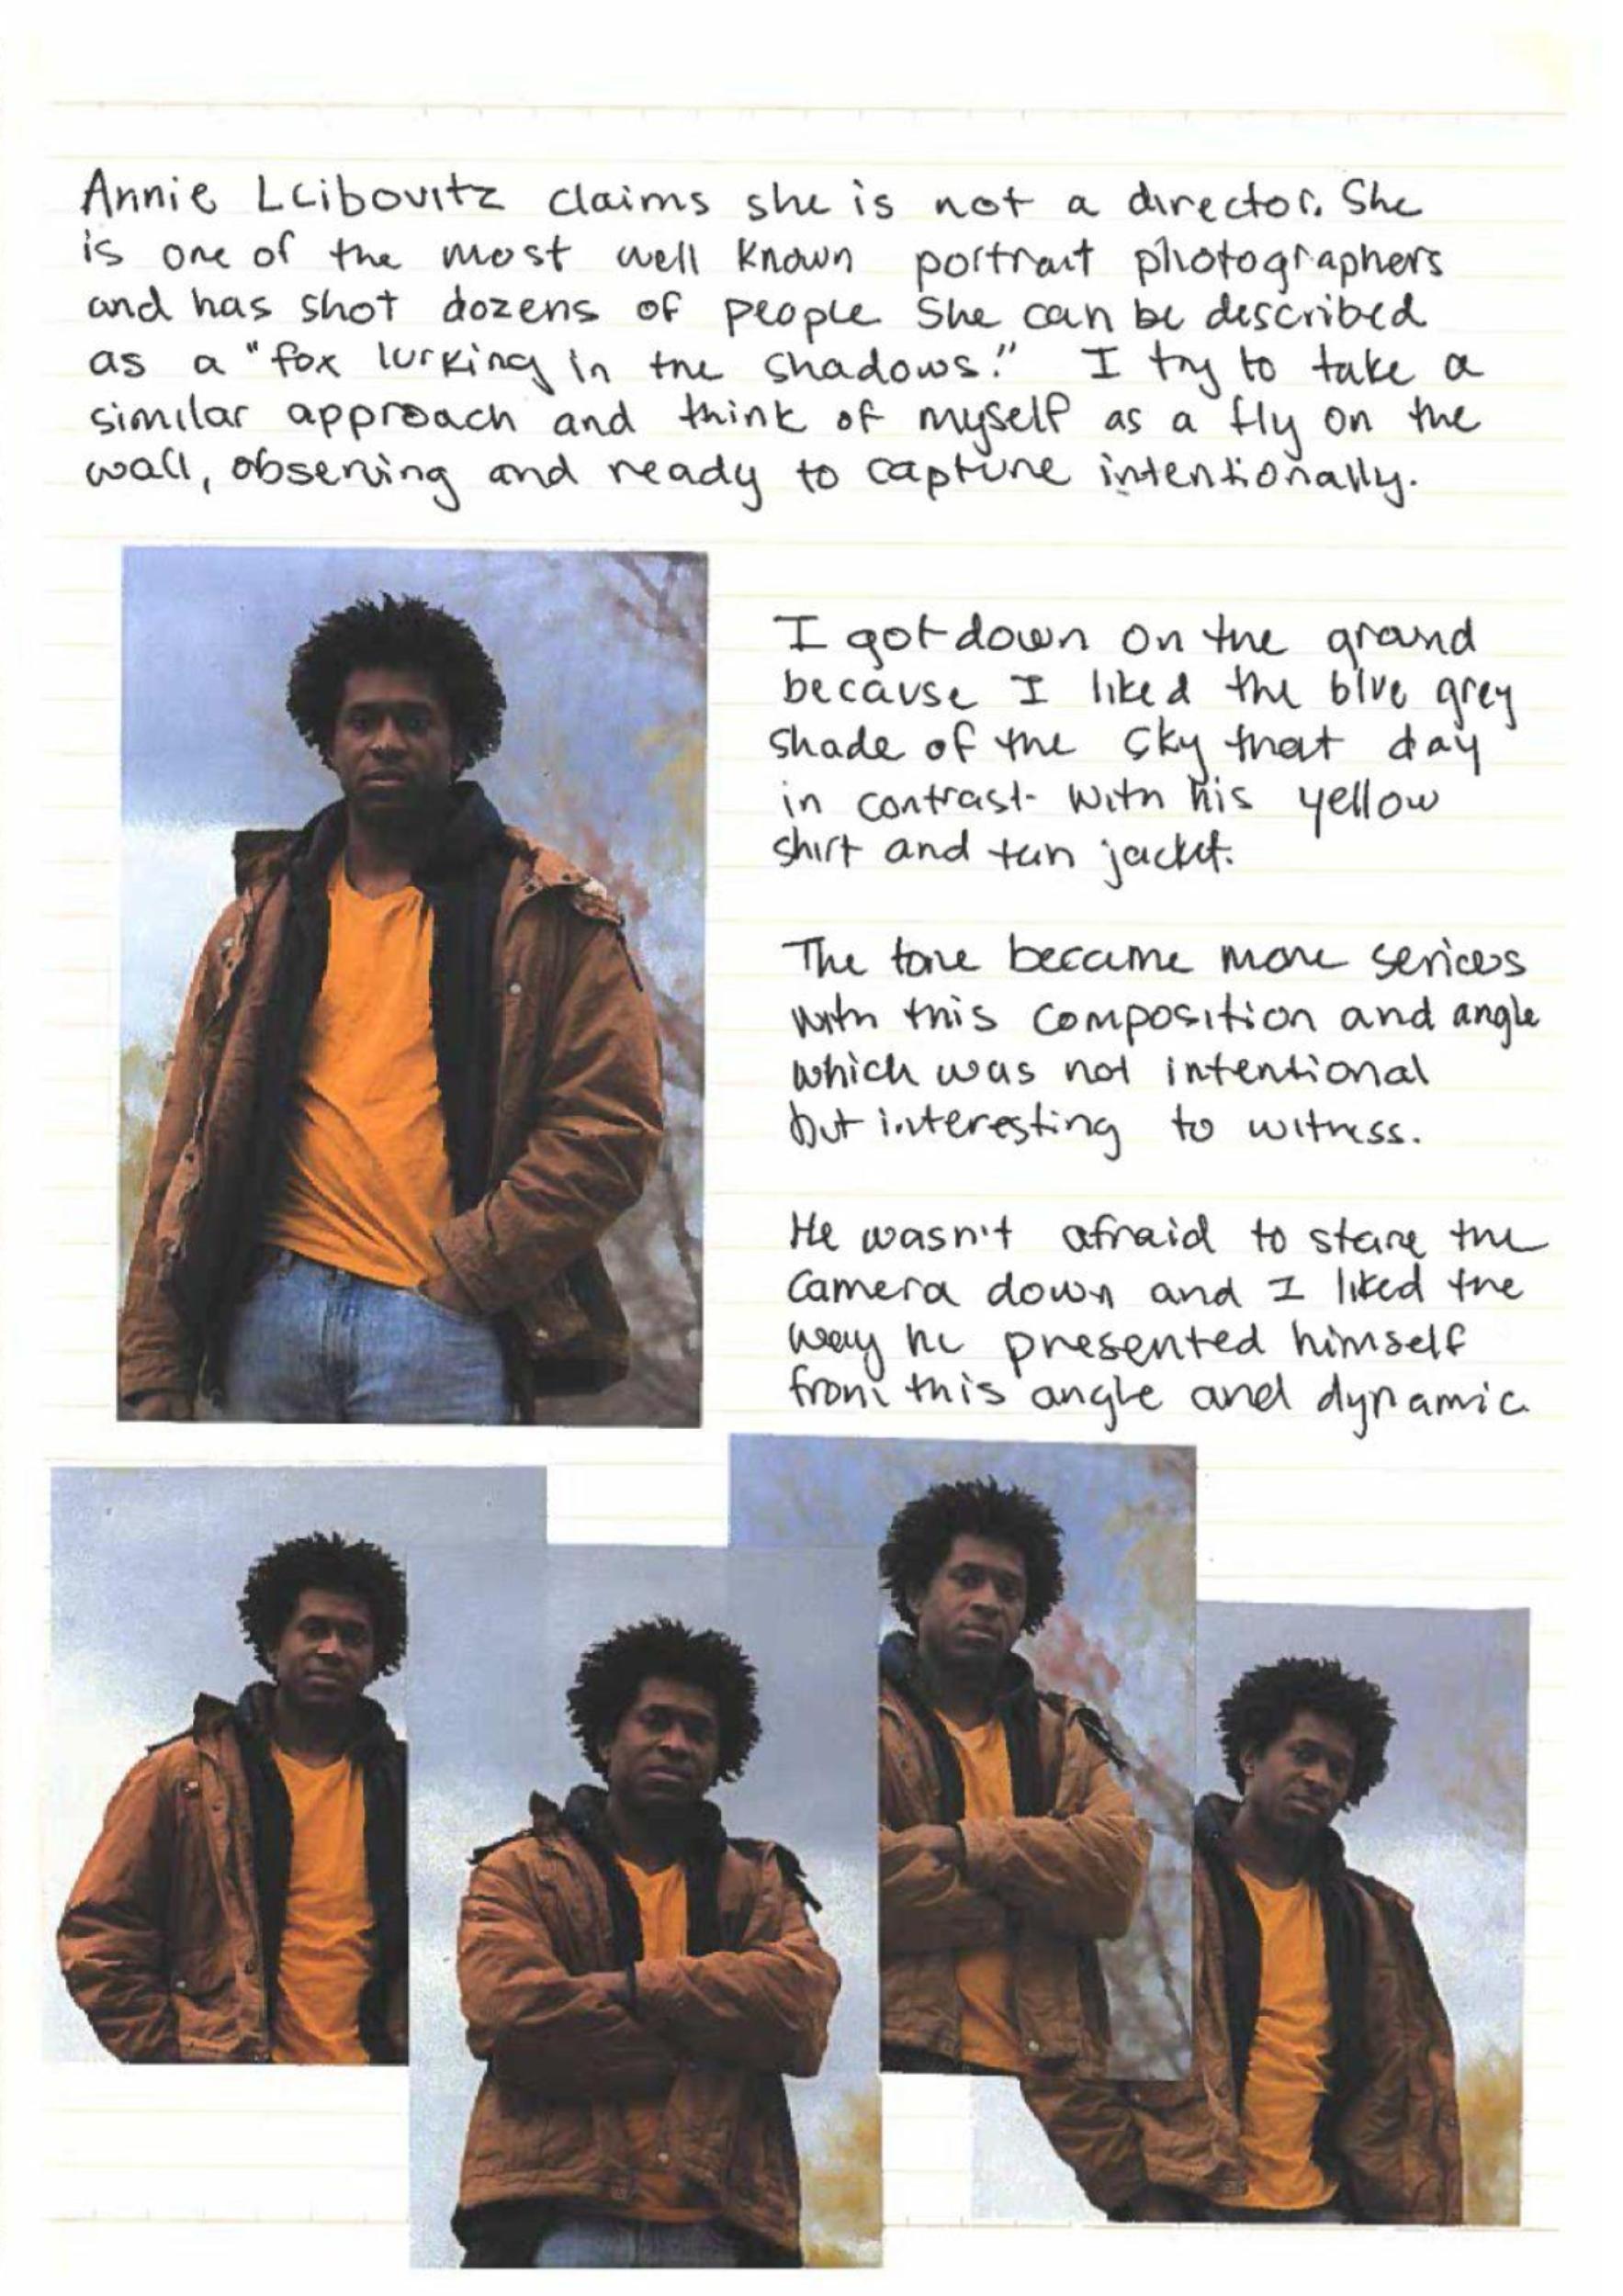 Annie Leibovitz claims she is not a director. She
is one of the most well known portrait photographers
and has shot dozens of people. She can be described
as a "fox lurking in the shadows." I try to take a
similar approach and think of myself as a fly on the
wall, observing and ready to capture intentionally.
I got down on the ground
because I liked the blue grey
shade of the sky that day
in contrast with his yellow
shirt and tan jacket.
The tone became more serious
with this composition and angle
which was not intentional
but interesting to witness.
He wasn't afraid to stare the
camera down and I liked the
way he presented himself
from this angle and dynamic